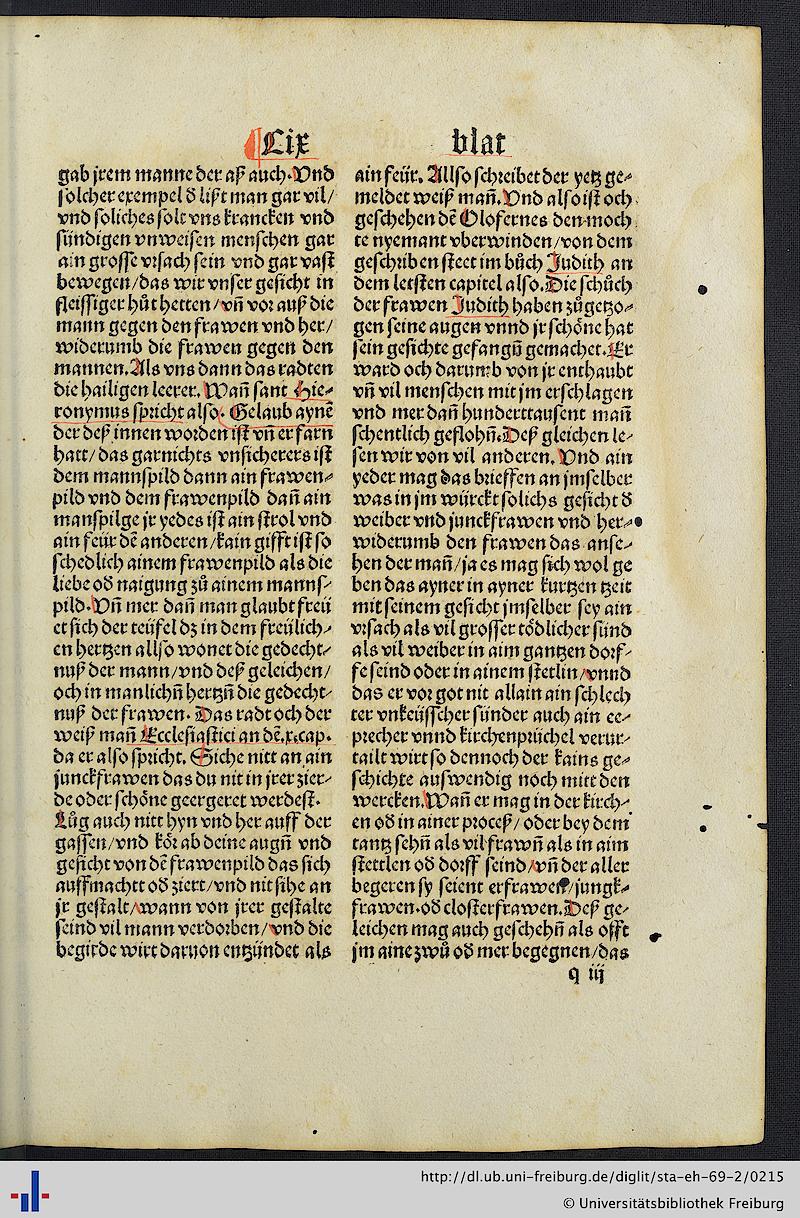 Lix blat
gab jrem manne der aß auch. Vnd
solcher exempel d̕ lißt man gar vil/
vnd soliches solt vns krancken vnd
sündigen vnweisen menschen gar
ain grosse vrsach sein vnd gar vast
bewegen/das wir vnser gesicht in
fleissiger hůt hetten/vn̄ vor auß die
mann gegen den frawen vnd her/
widerumb die frawen gegen den
mannen. Als vns dann das radten
die hailigen leerer. Wan̄ sant Hie⸗
ronymus spricht also. Gelaub aynē
der deß innen worden ist vn̄ erfarn
hatt/das garnichts vnsicherers ist
dem mannspild dann ain frawen⸗
pild vnd dem frawenpild dan̄ ain
manspilge jr yedes ist ain strol vnd
ain feür dē anderen/kain gifft ist so
schedlich ainem frawenpild als die
liebe od̕ naigung zů ainem manns⸗
pild. Vn̄ mer dan̄ man glaubt freü
et sich der teüfel dz in dem freülich⸗
en hertzen allso wonet die gedecht⸗
nuß der mann/vnd deß geleichen/
och in manlichn̄ hertzn̄ die gedecht⸗
nuß der frawen. Das radt och der
weiß man̄ Ecclesiastici an dē.x.cap.
da er also spricht. Siche nitt an ain
junckfrawen das du nit in jrer zier⸗
de oder schöne geergeret werdest.
Lůg auch nitt hyn vnd her auff der
gassen/vnd kör ab deine augn̄ vnd
gesicht von dē frawenpild das sich
auffmachtt od̕ ziert/vnd nit sihe an
jr gestalt/wann von jrer gestalte
seind vil mann verdorben/vnd die
begirde wirt daruon entzündet als
ain feür. Allso schreibet der yetz ge⸗
meldet weiß man̄. Vnd also ist och
geschehen dē Olofernes den moch
te nyemant vberwinden/von dem
geschriben steet im bůch Judith an
dem letsten capitel also. Die schůch
der frawen Judith haben zůgetzo⸗
gen seine augen vnnd jr schöne hat
sein gesichte gefangn̄ gemachet. Er
ward och darumb von jr enthaubt
vn̄ vil menschen mit jm erschlagen
vnd mer dan̄ hunderttausent man̄
schentlich geflohn̄. Deß gleichen le⸗
sen wir von vil anderen. Vnd ain
yeder mag das brieffen an jmselber
was in jm würckt solichs gesicht d̕
weiber vnd junckfrawen vnd her⸗
widerumb den frawen das anse⸗
hen der man̄/ja es mag sich wol ge
ben das ayner in ayner kurtzen tzeit
mit seinem gesicht jmselber sey ain
vrsach als vil grosser tödlicher sünd
als vil weiber in aim gantzen dorf⸗
fe seind oder in ainem stetlin/vnnd
das er vor got nit allain ain schlech
ter vnkeüsscher sünder auch ain ee⸗
precher vnnd kirchenprüchel verur⸗
tailt wirt so dennoch der kains ge⸗
schichte auswendig noch mitt den
wercken. Wan̄ er mag in der kirch⸗
en od̕ in ainer proceß/oder bey dem
tantz sehn̄ als vil frawn̄ als in aim
stettlen od̕ dorff seind/vn̄ der aller
begeren sy seient er frawen/jungk⸗
frawen.od̕ closterfrawen. Deß ge⸗
leichen mag auch geschehn̄ als offt
jm aine zwů od̕ mer begegnen/das
q iij
http://dl.ub.uni-freiburg.de/diglit/sta-eh-69-2/0215
© Universitätsbibliothek Freiburg